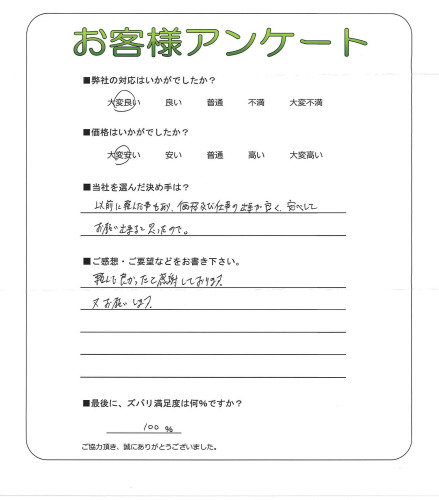 お客様アンケート
■弊社の対応はいかがでしたか?
大変良い 良い 普通 不満 大変不満
■価格はいかがでしたか?
大変安い 安い 普通 高い 大変高い
■当社を選んだ決め手は?
以前に頼んだ事もあり、価格及び仕事の出来が良く、安心して
お願い出来ると思ったので。
■ご感想・ご要望などをお書き下さい。
頼んで良かったと感謝しております。
又お願いします。
■最後に、ズバリ満足度は何%ですか?
100 %
ご協力頂き、誠にありがとうございました。